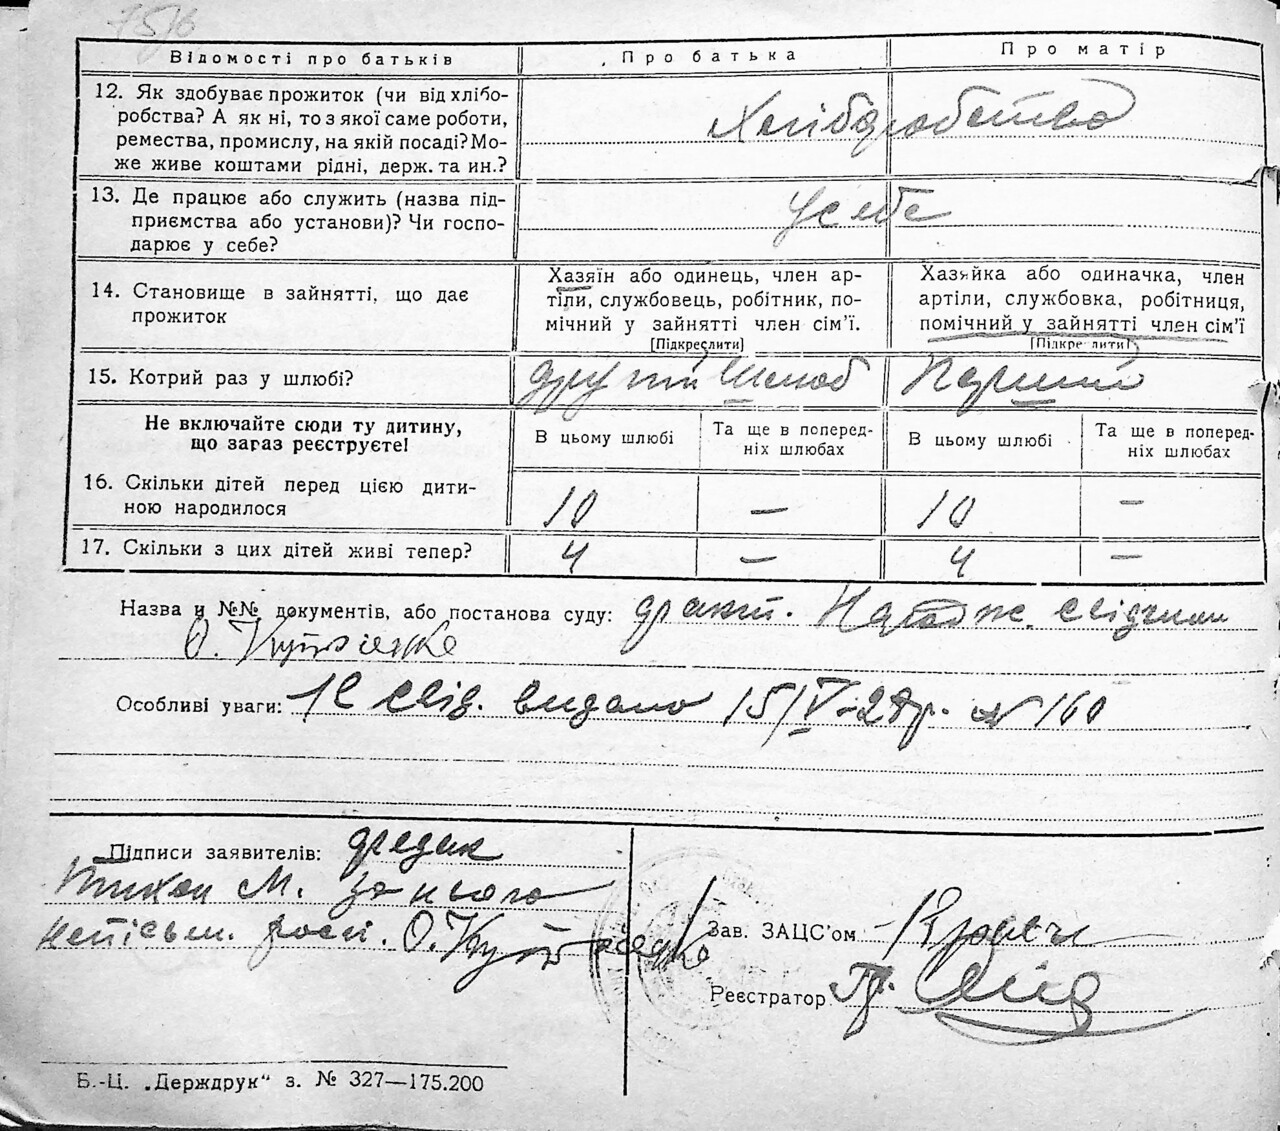 75/6
Відомості про батьків
Про батька
Про матір
12. Як здобуває прожиток (чи від хлібо-
робства? А як ні, то з якої саме роботи,
ремества, промислу, на якій посаді? Мо-
же живе коштами рідні, держ. та ин.?
Хліборобство
13. Де працює або служить (назва під-
приємства або установи)? Чи госпо-
дарює у себе?
У себе
14. Становище в зайнятті, що дає
прожиток
Хазяїн або одинець, член ар-
тіли, службовець, робітник, по-
мічний у зайнятті член сім'ї.
[Підкреслити]
Хазяйка або одиначка, член
артіли, службовка, робітниця,
помічний у зайнятті член сім'ї
[Підкре лити]
15. Котрий раз у шлюбі?
другий шлюб
Перший
Не включайте сюди ту дитину,
що зараз реєструєте!
В цьому шлюбі
Та ще в поперед-
ніх шлюбах
В цьому шлюбі
Та ще в поперед-
ніх шлюбах
16. Скільки дітей перед цією дити-
ною народилося
10 — 10 —
17. Скільки з цих дітей живі тепер?
4 — 4 —
Назва и №№ документів, або постанова суду:
О.
Особливі уваги: свід. видано 15/V-28р. № 160
Підписи заявителів:
М. за нього
непісьм. росп. О.
Зав. ЗАЦС'ом
Реєстратор Гр.
Б.-Ц. „Держдрук“ з. № 327—175.200